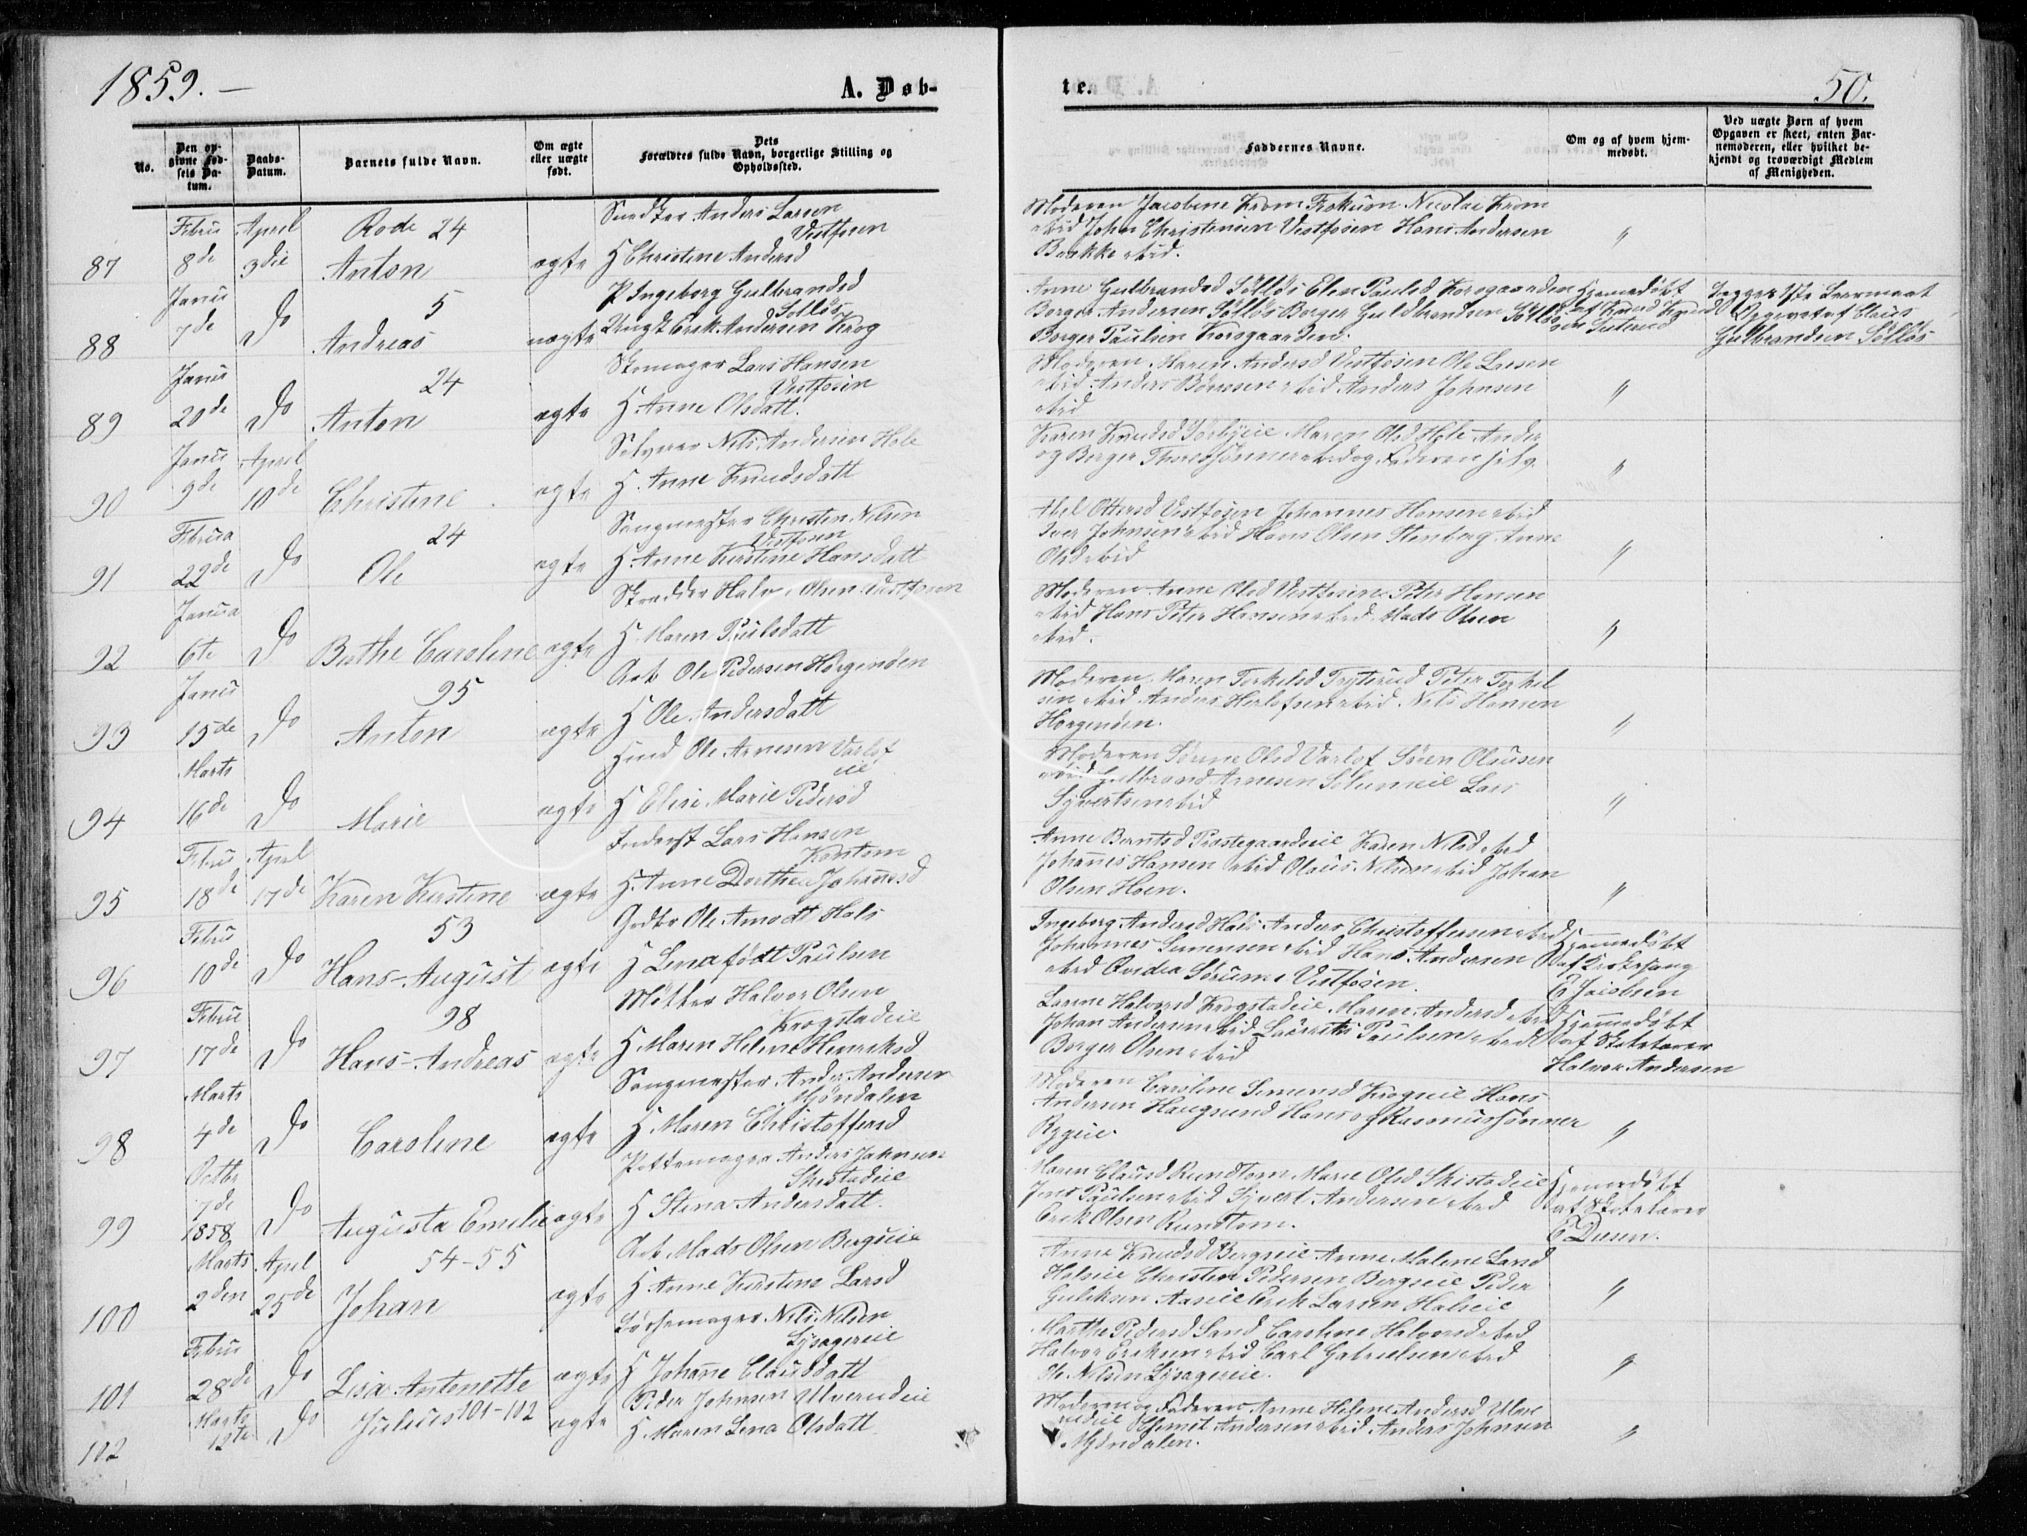 1859. —
A. Døb-
te.
50.
No.
Den op-
givne Fød-
sels Da-
tum.
Daabs-
Datum.
Barnets fulde Navn.
Om ægte
eller uægte
født.
Dets
Forældres fulde Navn, borgerlige Stilling og
Opholdssted.
Faddernes Navne.
Om og af hvem hjem-
medøbt.
Ved uægte Børn af hvem
Opgaven er skeet, enten Bar-
nemoderen, eller hvilket be-
kjendt og troværdigt Medlem
af Menigheden.
87
Febru
8de
April
3die
Rode 24
Anton
ægte
Snedker Anders Larsen
Vestfosen
H Christine Andersd
Moderen Jacobine Krom Fiskum Nicolai Krom
ibid John Christensen Vestfosen Hans Andersen
Bakke ibid.
"
88
Janu
7de
Do
5
Andreas
uægte
P Ingeborg Gulbrandsd
Solløs
Ungk Erik Andersen Krog
Anne Gulbrandsd Sölløs Elen Paulsd Korsgaarden
Borger Andersen Sölløs Borger Guldbrandsen Sölløs
Borger Paulsen Korsgaarden.
Hjemmedøbt
af Knud Knud
sen
Opgivet af Claus
Gulbrandsen Sölløs
89
Janu
20de
Do
24
Anton
ægte
Skomager Lars Hansen
Vestfosen
H. Anne Olsdatt.
Moderen Maren Andersd Vestfosen Ole Larsen
ibid Anders Börresen ibid Anders Johnsen
ibid
"
90
Janu
9de
April
10de
Christine
ægte
Selveier Nils Andersen Hole
H. Anne Knudsdatt
Karen Knudsd Maren Olsd Hole Anders
og Borger Thoressønner ibid og Faderen selv.
"
91
Februa
22de
Do
24
Ole
ægte
Saugmester Christen Nilsen
Vestfosen
H. Anne Kirstine Hansdatt
Abel Ottersd Vestfosen Johannes Hansen ibid
Iver Johnsen ibid Hans Olsen Stenberg Anne
Olsd ibid
"
92
Janua
6te
Do
Bathe Caroline
ægte
Skrædder Halv. Olsen Vestfosen
H. Maren Paulsdatt
Moderen Anne Olsd Vestfosen Peter Hansen
ibid Hans Peter Hansen ibid Mads Olsen
ibid.
"
93
Janu
15de
Do
95
Anton
ægte
Arb Ole Pedersen Horgenöen
H Ole Andersdatt
Moderen Maren Torkelsd Tryterud Peter Torkel
sen ibid Anders Herlofsen ibid Nils Hansen
Horgenöen.
"
94
Marts
16de
Do
Marie
ægte
Huusd Ole Arnesen Varlof
eie
H Elise Marie Pedersd
Moderen Sörine Olsd Varlof Sören Olausen
ibid Gulbrand Arnesen Solumeie Lars
Syvertsen ibid
"
95
Febru
18de
April
17de
Karen Kirstine
ægte
Inderst Lars Hansen
H. Anne Dorthea Johansd
Anne Berntsd Præstegaardeie Karen Nilsd ibid
Johannes Hansen ibid Olaus Nilsen ibid Johan
Olsen Hoen.
"
96
Febru
10de
Do
53
Hans-August
ægte
Gadbr Ole Amodt Hals
H Lena født Paulsen
Ingeborg Andersd Hals Anders Christoffersen ibid
Johannes Simensen ibid Hans Andersen
ibid Ovidea Sörum i Vestfosen.
Hjemmedöbt
af Kirkesang
C Jacobsen
97
Febru
17de
Do
98
Hans-Andreas
ægte
Møller Halvor Olsen
Krogstadeie
H. Maren Helene Henriksd
Larine Halvorsd Krogstadeie Maren Andersd ibid
Johan Andersen ibid Laurits Paulsen ibid
Borger Olsen ibid
Hjemmedöbt
af Skolelærer
Halvor Andersen
98
Marts
4de
Do
Caroline
ægte
Saugmester Anders Andersen
Mjöndalen
H Maren Christoffersd
Moderen Caroline Simensd Krogeie Hans
Andersen Haugsund Hans og Rasmussönner
Rygeie.
"
99
Octbr
7de
1858
Do
Augusta Emelie
ægte
Pottemager Anders Johnsen
Skistadeie
H Stina Andersdatt.
Maren Clausd Rundtom Marie Olsd Skistadeie
Jens Paulsen ibid Syvert Andersen ibid
Erik Olsen Rundtom.
Hjemmedöbt
af Skolelærer
C Diesen.
100
Marts
2den
April
25de
54-55
Johan
ægte
Arb Mads Olsen Bergseie
H. Anne Kirstine Larsd
Anne Knudsd Bergseie Anne Malene Larsd
Halseie Christen Pedersen Bergseie Peder
Guliksen Aaseie Erik Larsen Halseie
"
101
Febru
28de
Do
Lisa Antonette
ægte
Børsemager Nils Nilsen
Lysagereie
H Johanne Clausdatt
Marthe Pedersd Sand Caroline Halvorsd ibid
Halvor Eriksen ibid Carl Gabrielsen ibid
Ole Nilsen Lysagereie.
"
102
Marts
12te
Do
Julius 101-102
ægte
Peder Johnsen Ulverudeie
H. Maren Lena Olsdatt
Moderen og Faderen Anne Helene Andersd Ulve
rudeie Andersen ibid Anders Johnsen
Mjöndalen.
"